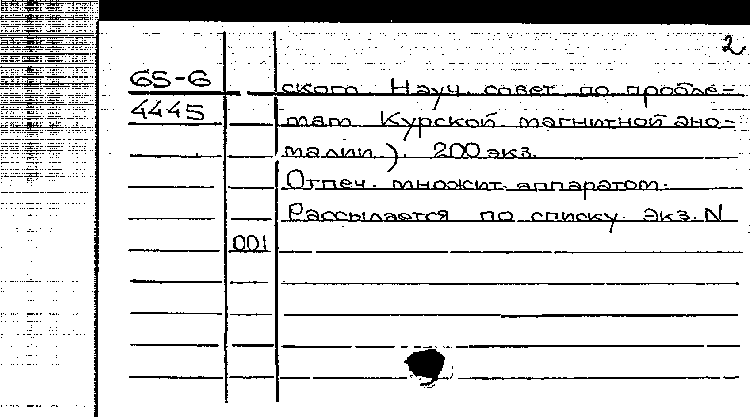 2
65-6 ского. Науч. совет по пробле-
4445 мам Курской магнитной ано-
малии). 200 экз.
Отпеч. множит. аппаратом.
Рассылается по списку. Экз. N
001